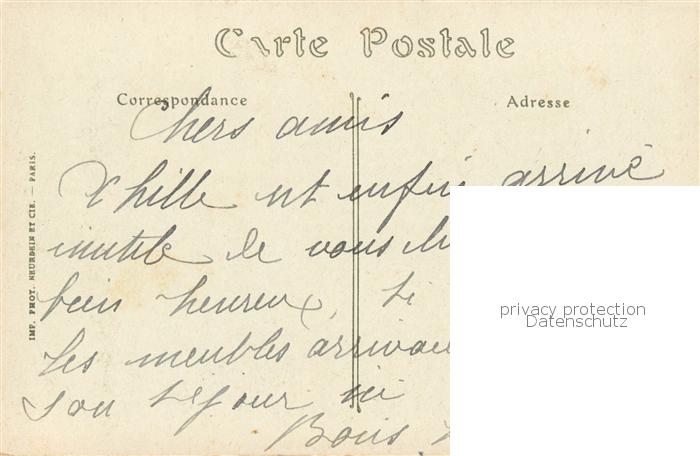 Carte Postale
Correspondance
Adresse
Chers amis
est enfin arrivé
inutile de vous
bien heureux, si
les meubles
son séjour ici
Bons
IMP. PHOT. NEURDEIN ET CIE. — PARIS.
privacy protection
Datenschutz